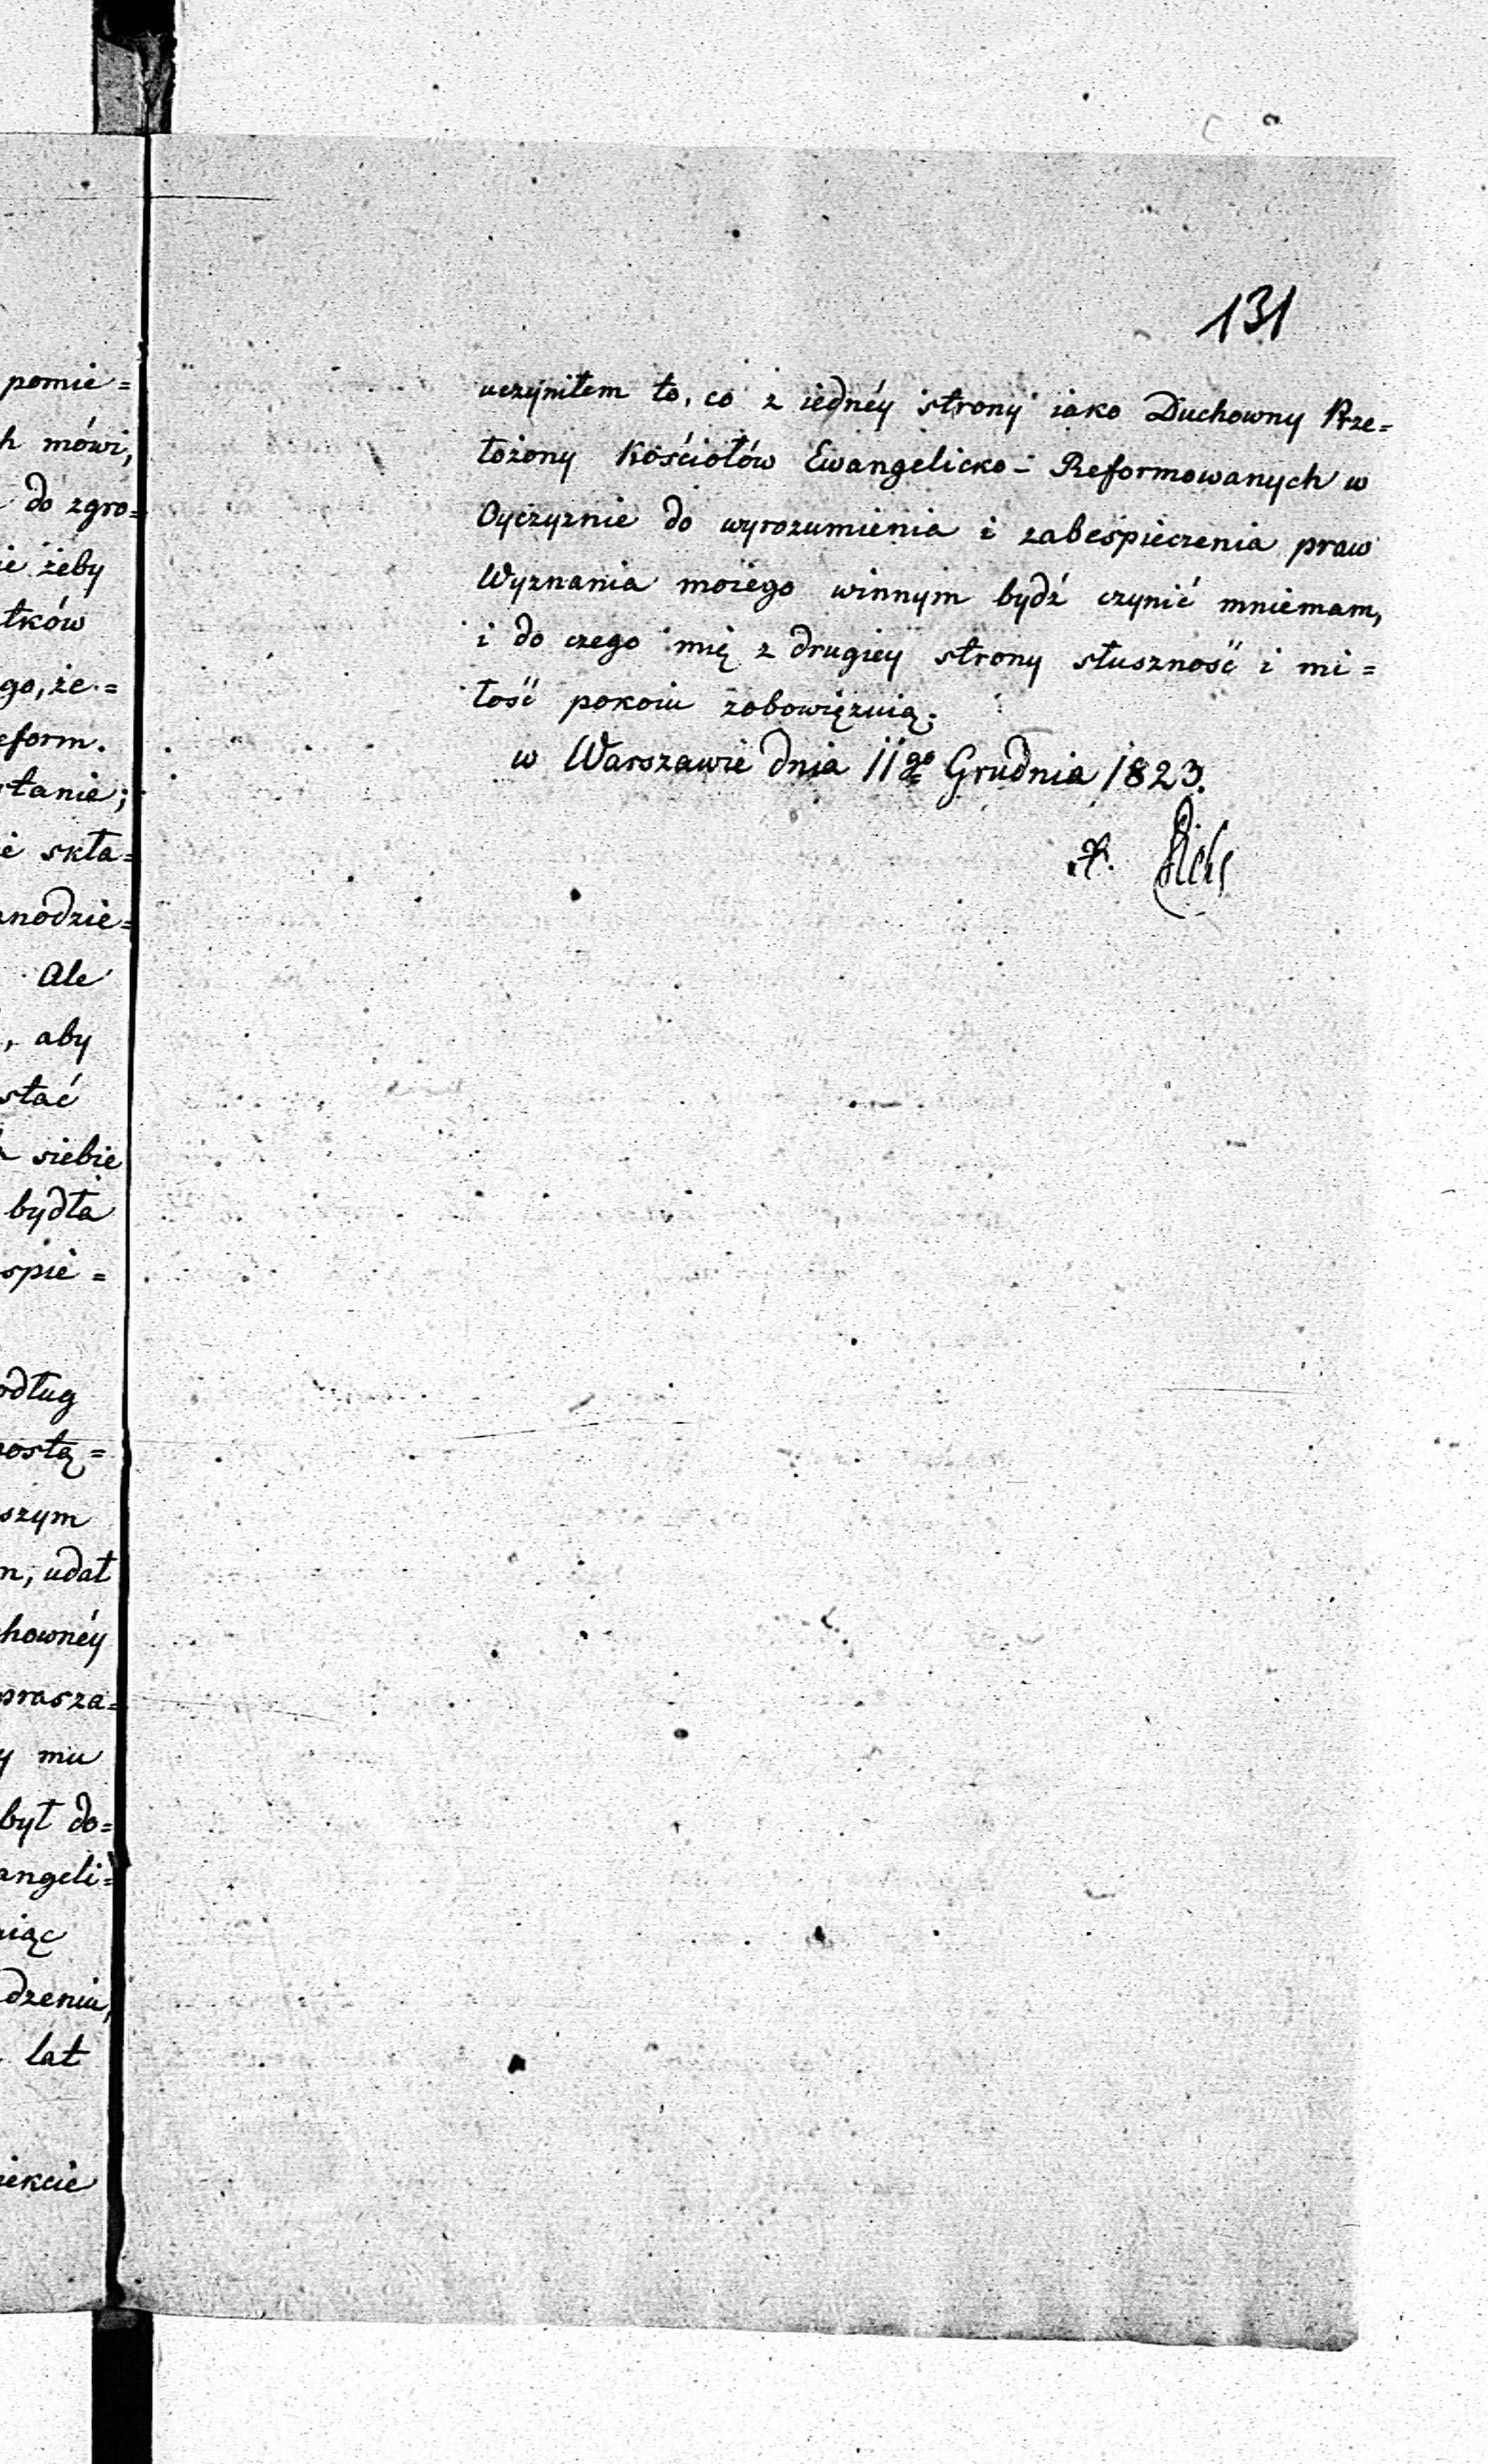 pomie=
h mówi,
do zgro=
ie żeby
tków
go, że=
eform.
stanie;
ie skła=
anodzie=
Ale
, aby
stać
siebie
bydła
spie=
odług
postą=
szym
m, udał
howney
prasza=
y mu
był do=
angeli=
niąc
dzeniu,
lat
iekcie
131
uczyniłem to, co z iednéy strony iako Duchowny Prze=
łożony Kościołów Ewangelicko-Reformowanych w
Oyczyznie do wyrozumienia i zabespieczenia praw
Wyznania moiego winnym bydź czynić mniemam,
i do czego mię z drugiey strony słuszność i mi=
łość pokoiu zobowięzuią;
w Warszawie dnia 11go Grudnia 1823.
X. Diehl